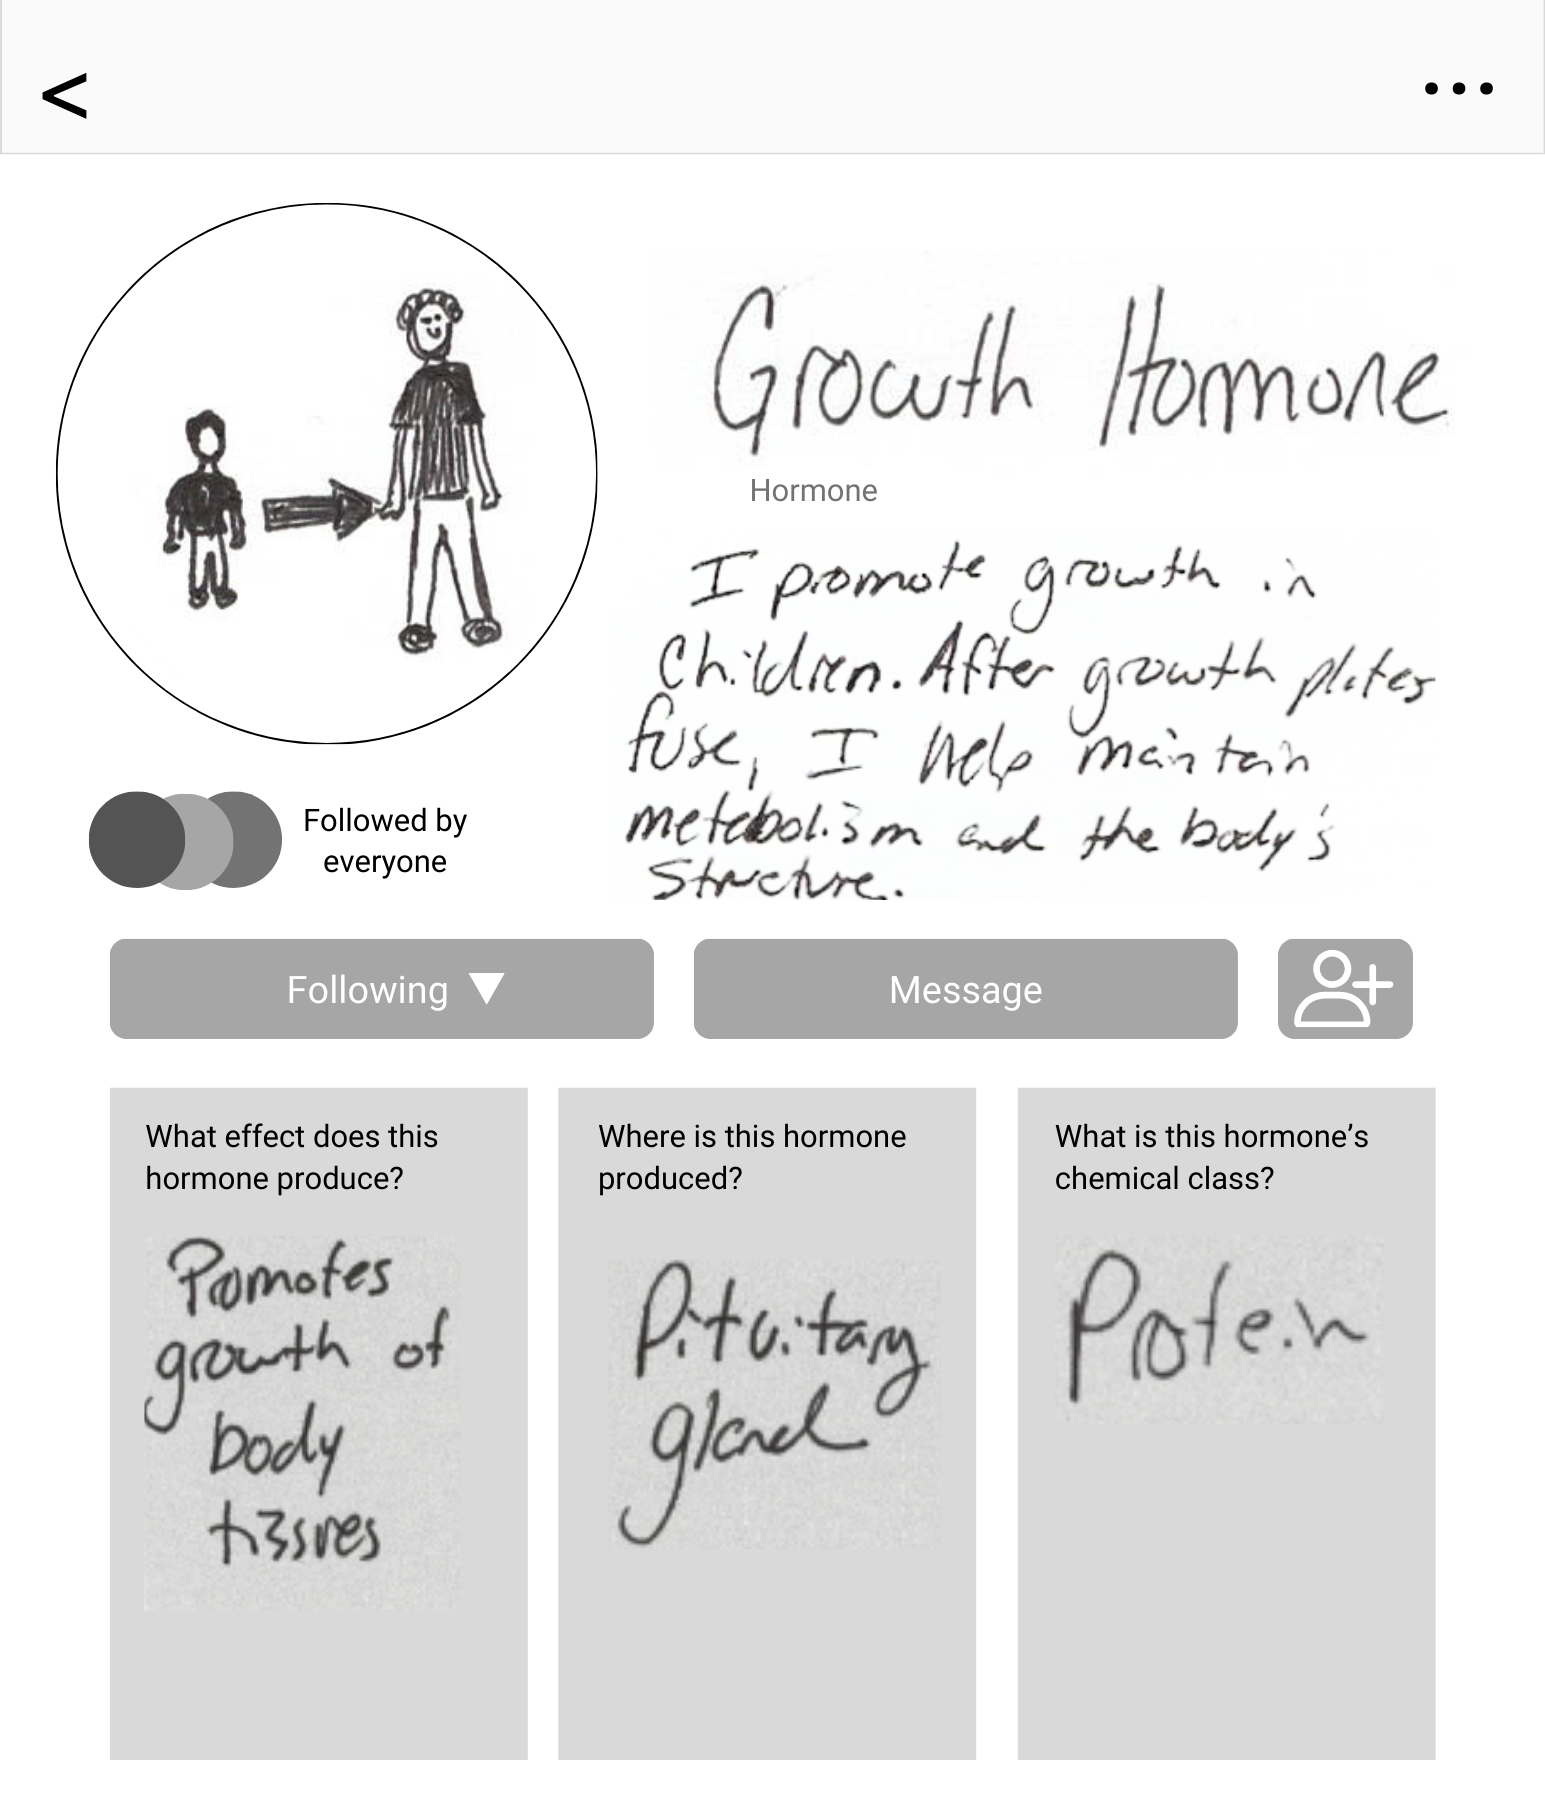 <
...
Growth Hormone
Hormone
I promote growth in
Children. After growth plates
fuse, I help maintain
metabolism and the body's
Structure.
Followed by
everyone
Following ▼
Message
What effect does this
hormone produce?
Promotes
growth of
body
tissues
Where is this hormone
produced?
Pituitary
gland
What is this hormone’s
chemical class?
Protein